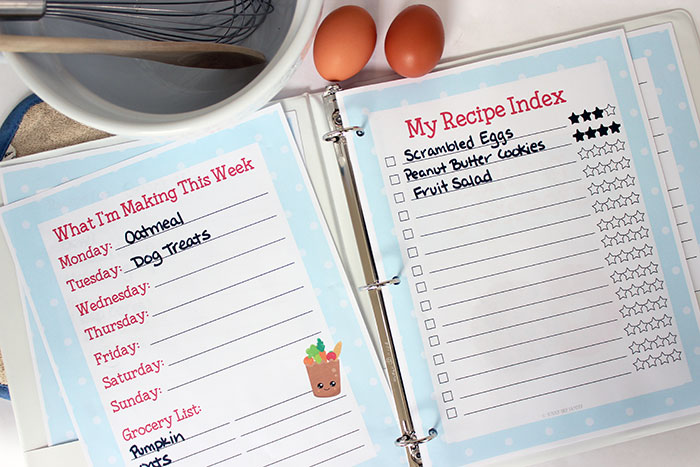 What I'm Making This Week
Monday: Oatmeal
Tuesday: Dog Treats
Wednesday:
Thursday:
Friday:
Saturday:
Sunday:
Grocery List:
Pumpkin
My Recipe Index
Scrambled Eggs
Peanut Butter Cookies
Fruit Salad